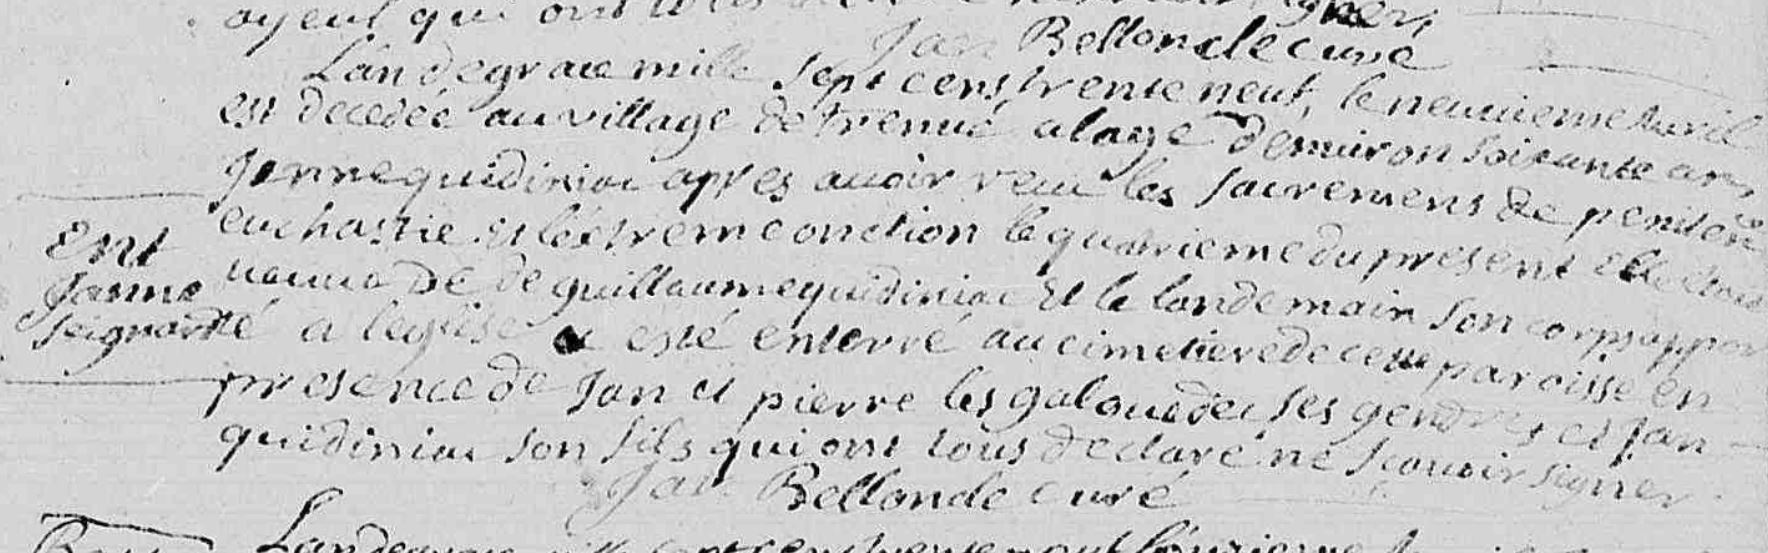 ayeul qui ont tous
Jan Bellonde curé
Lan de grace mille sept cens trente neuf, le neuvieme avril
est decedée au village de trenué a lage denviron soixante ans
Jenne quidiniac apres avoir receu les sacremens de penitence
euchastie et lextreme onction le quatrieme du present elle etoit
veuve de de guillaume quidiniac Et le landemain son corps appor
té a leglise a esté enterré au cimetiere de cette paroisse en
presence de Jan et pierre les galouedec ses gendres et Jan
quidiniac son fils qui ont tous declaré ne scavoir signer
Jan Bellonde curé
Ent
Janne
seignard
Lan de grace